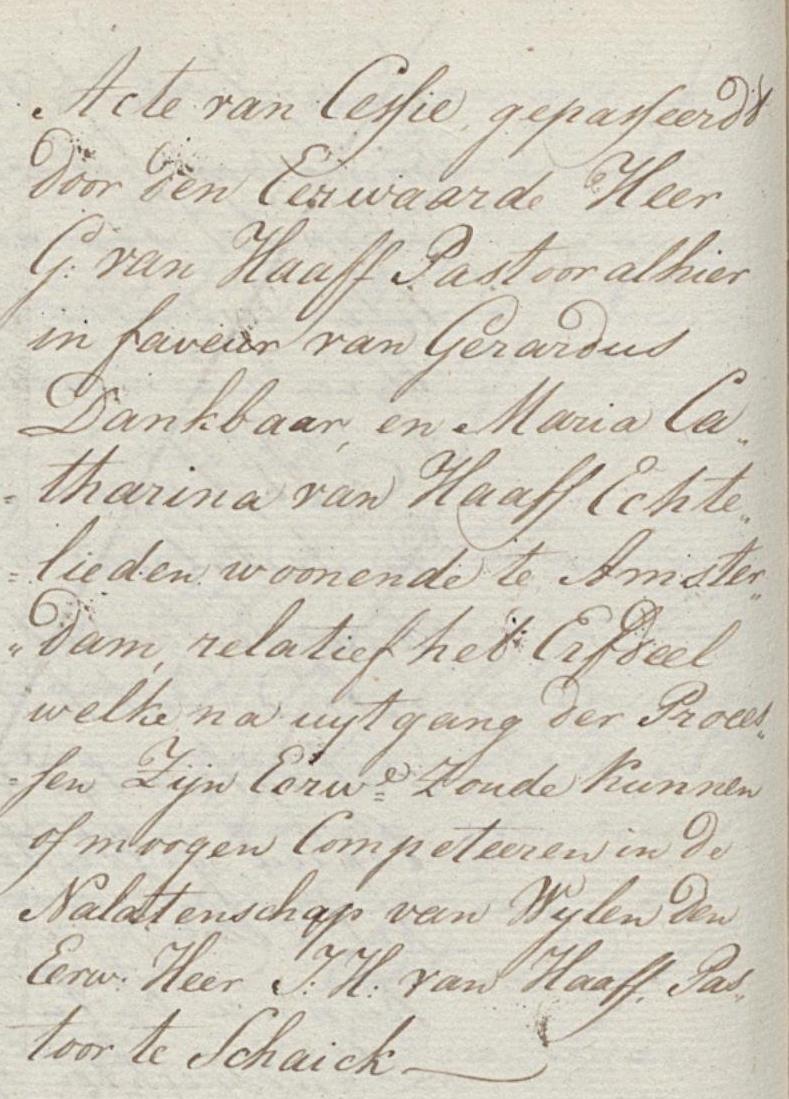 Acte van Cessie, gepasseerdt
door den Eerwaarde Heer
G: van Haaff Pastoor alhier
in faveur van Gerardus
Dankbaar, en Maria Ca„
=tharina van Haaff Echte„
=lieden woonende te Amster„
„dam, relatief het Erfdeel
welke na uytgang der Proces„
=sen Zijn Eerwe Zoude kunnen
of moogen Competeeren in de
Nalatenschap van Wylen den
Eerw: Heer J: H: van Haaff, Pas„
toor te Schaick